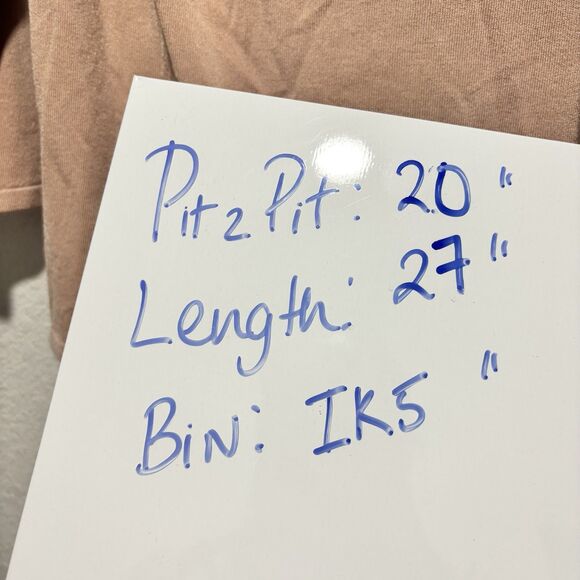 Pit 2 Pit: 20 "
Length: 27 "
BiN: IK5 "